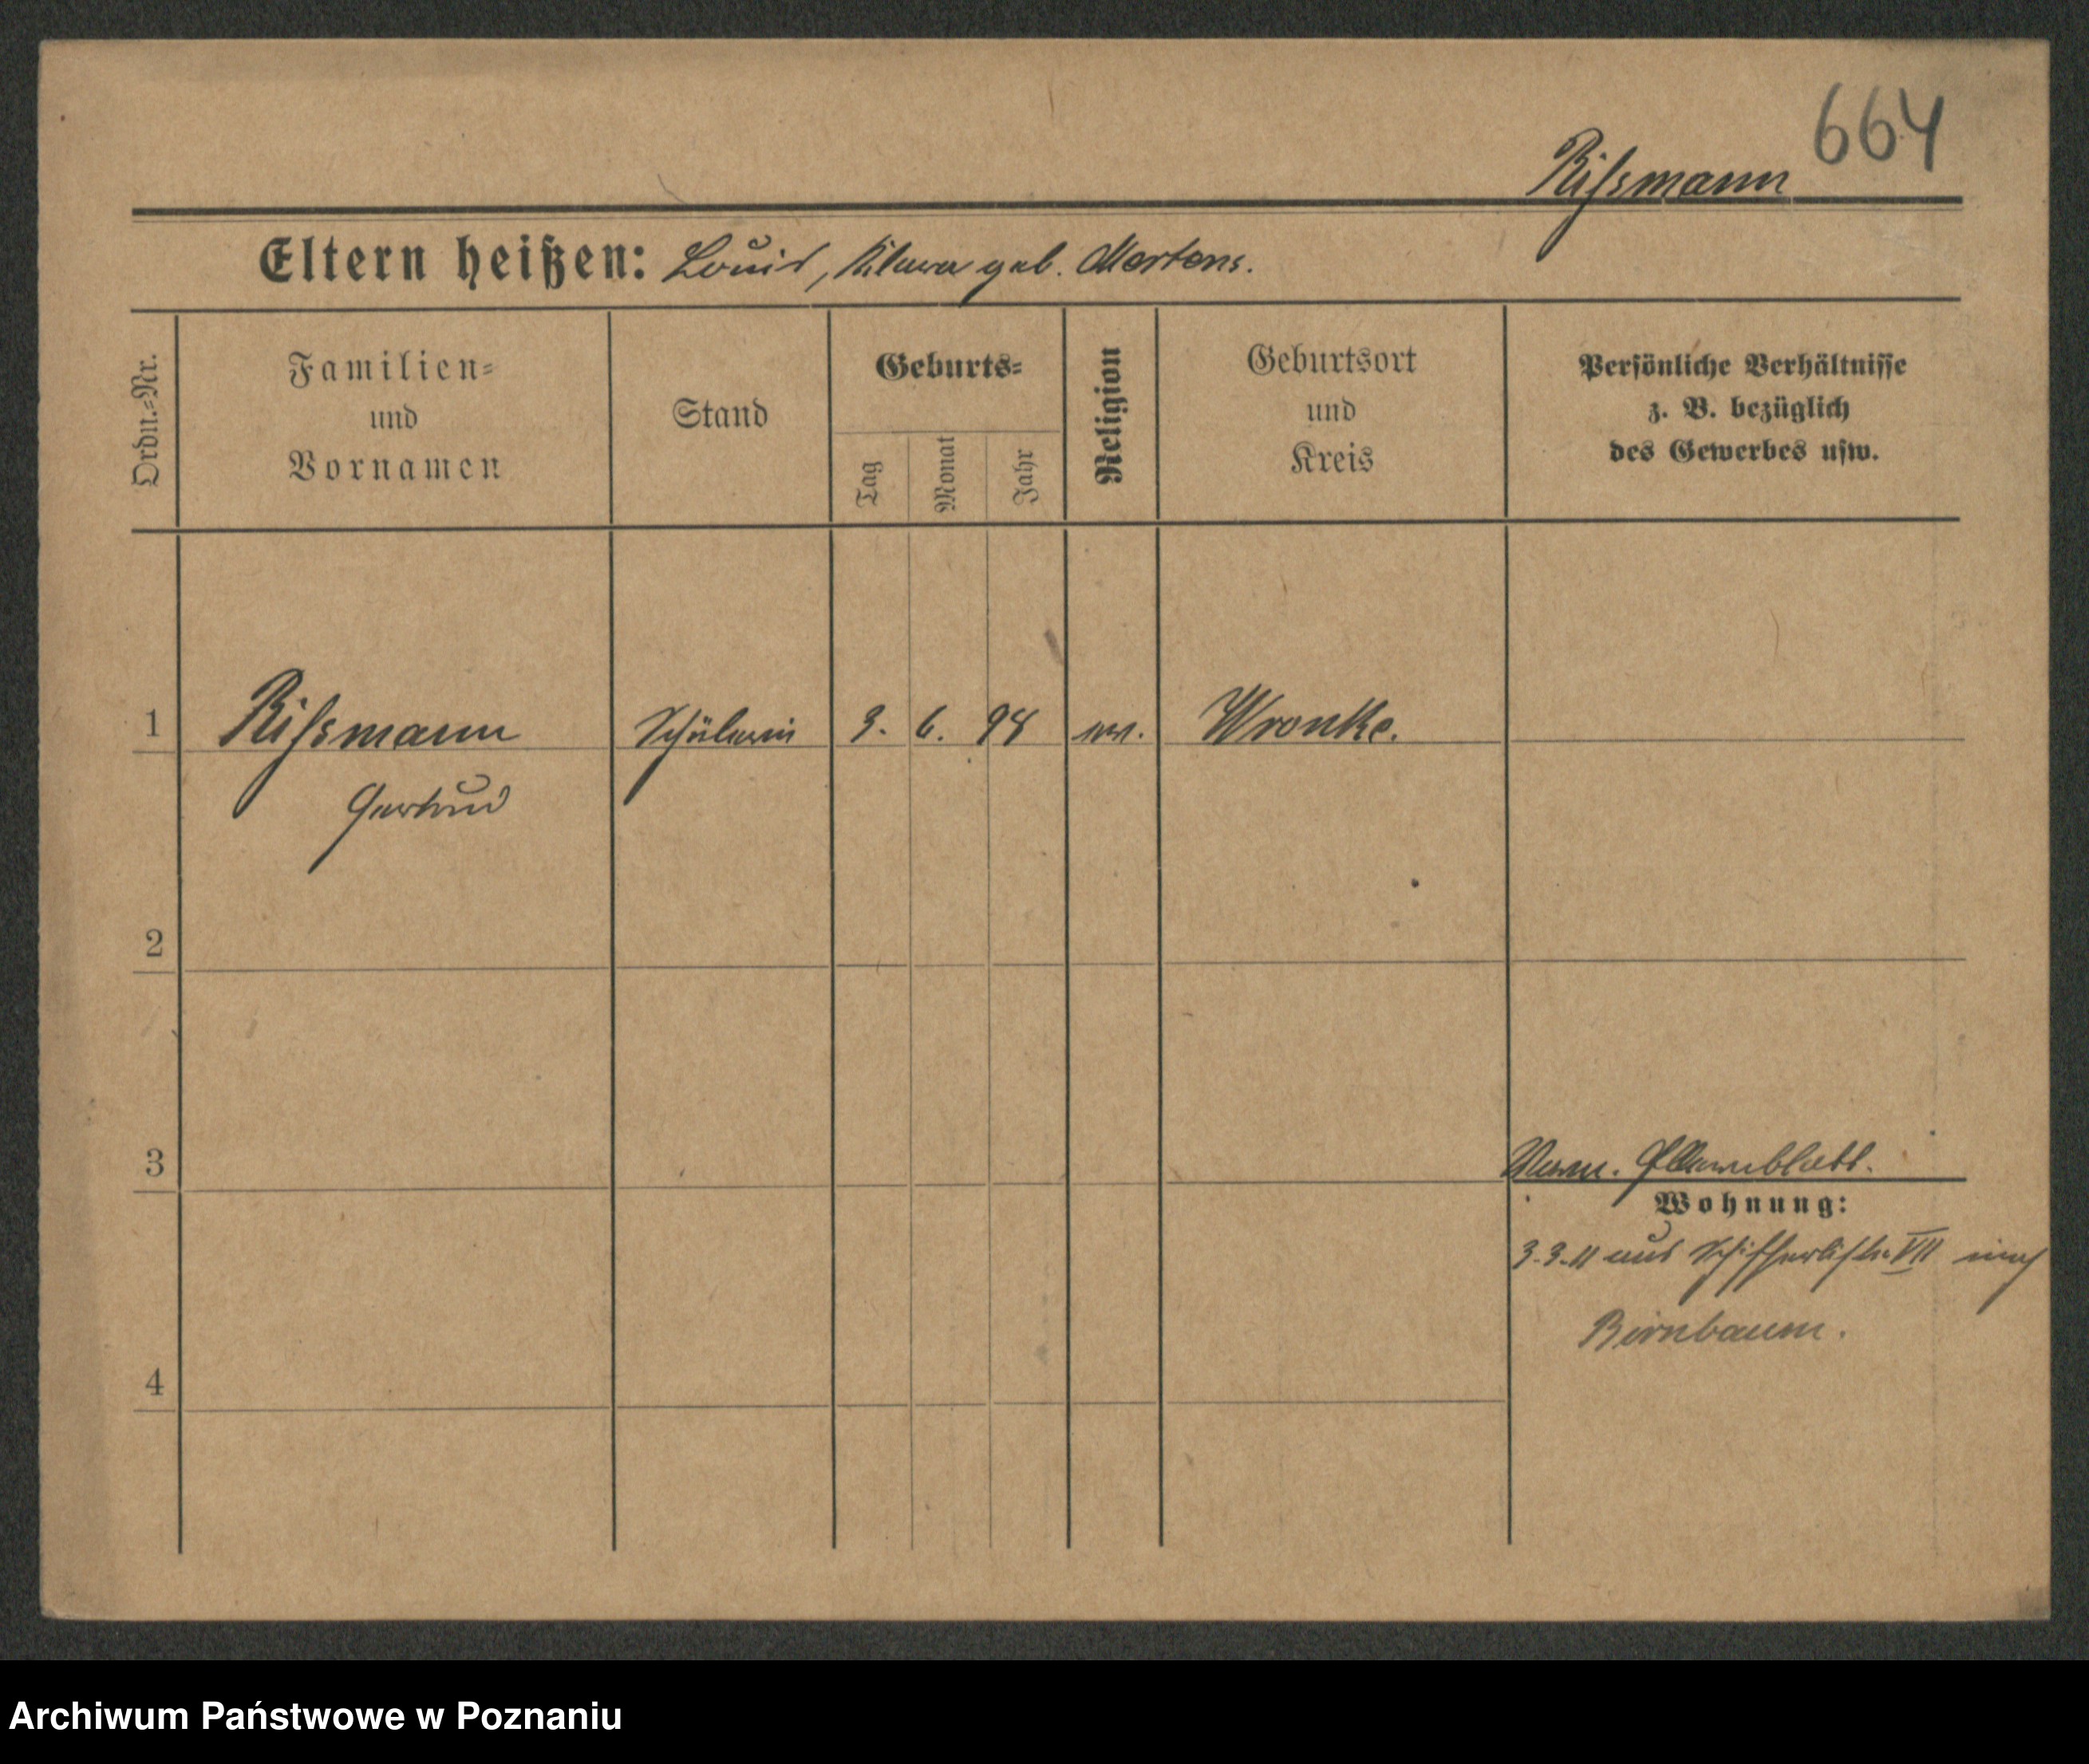 664
Rißmann
Eltern heißen: Louis, Klara geb. Mertens.
Ordn.=Nr.
Familien=
und
Vornamen
Stand
Geburts=
Tag
Monat
Jahr
Religion
Geburtsort
und
Kreis
Persönliche Verhältnisse
z. B. bezüglich
des Gewerbes usw.
1 Rißmann Schülerin 3. 6. 98 ev. Wronke.
Gertrud
2
3
Wohnung:
3.3.11 aus VII nach
Birnbaum.
4
Archiwum Państwowe w Poznaniu